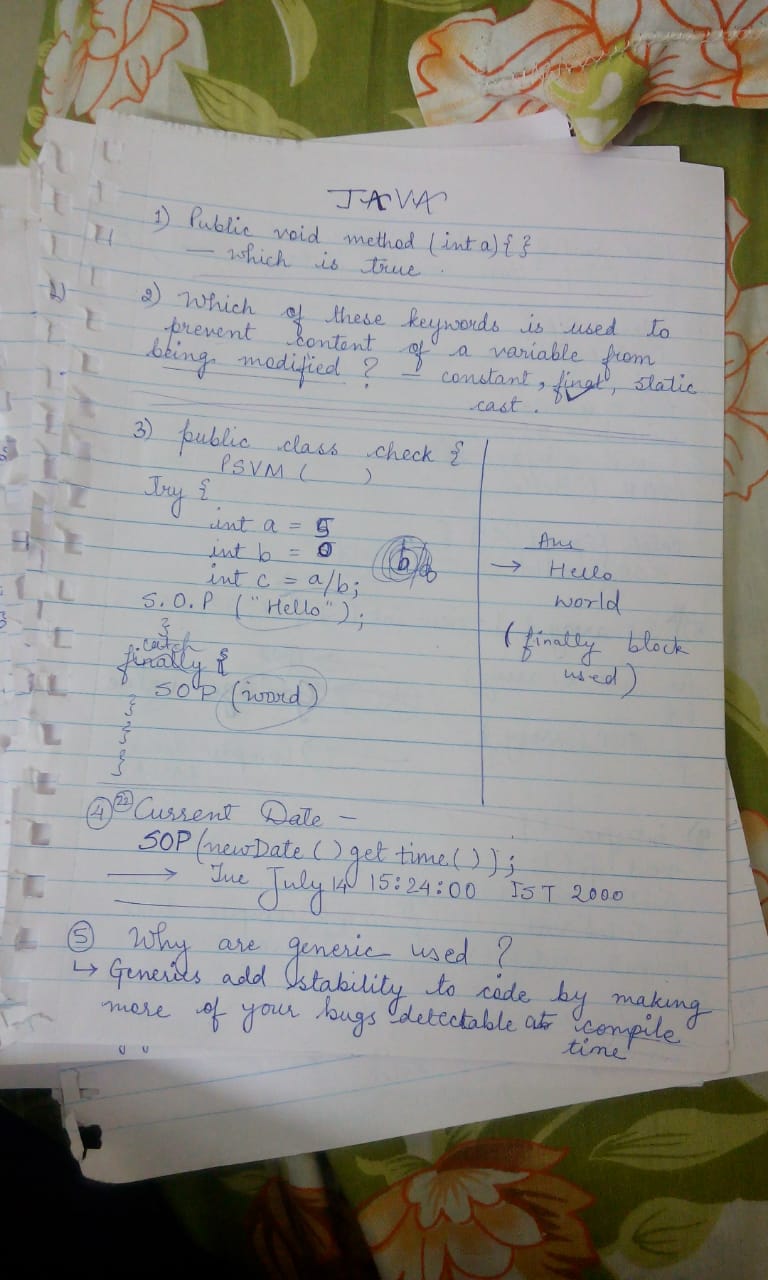 JAVA
1) Public void method (int a) { }
— which is true.
2) Which of these keywords is used to
prevent content of a variable from
being modified? — constant, final, static
cast.
3) public class check {
PSVM ( )
Try {
int a = 5
int b = 0
int c = a/b;
S.O.P ("Hello");
}
catch
finally {
SOP (word)
}
}
}
b/a
Ans
→ Hello
world
(finally block
used)
④ 22 Current Date —
SOP (new Date () get time ());
→ Tue July 14 15:24:00 IST 2000
⑤ Why are generic used?
↳ Generics add stability to code by making
more of your bugs detectable at compile
time